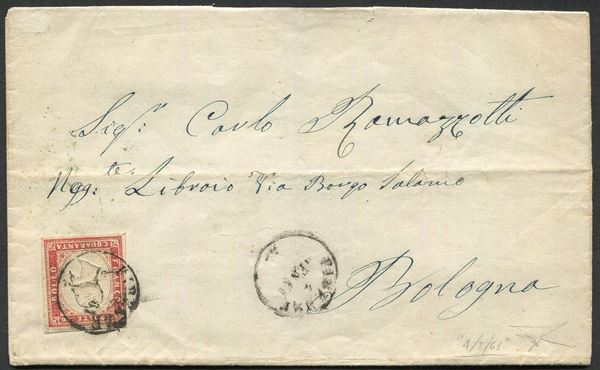 Sig.r Carlo Ramazzotti
Negg.te Libraio Via Borgo Salamo
Bologna
FRANCO
BOLLO
C. QUARANTA
"4/I/61"